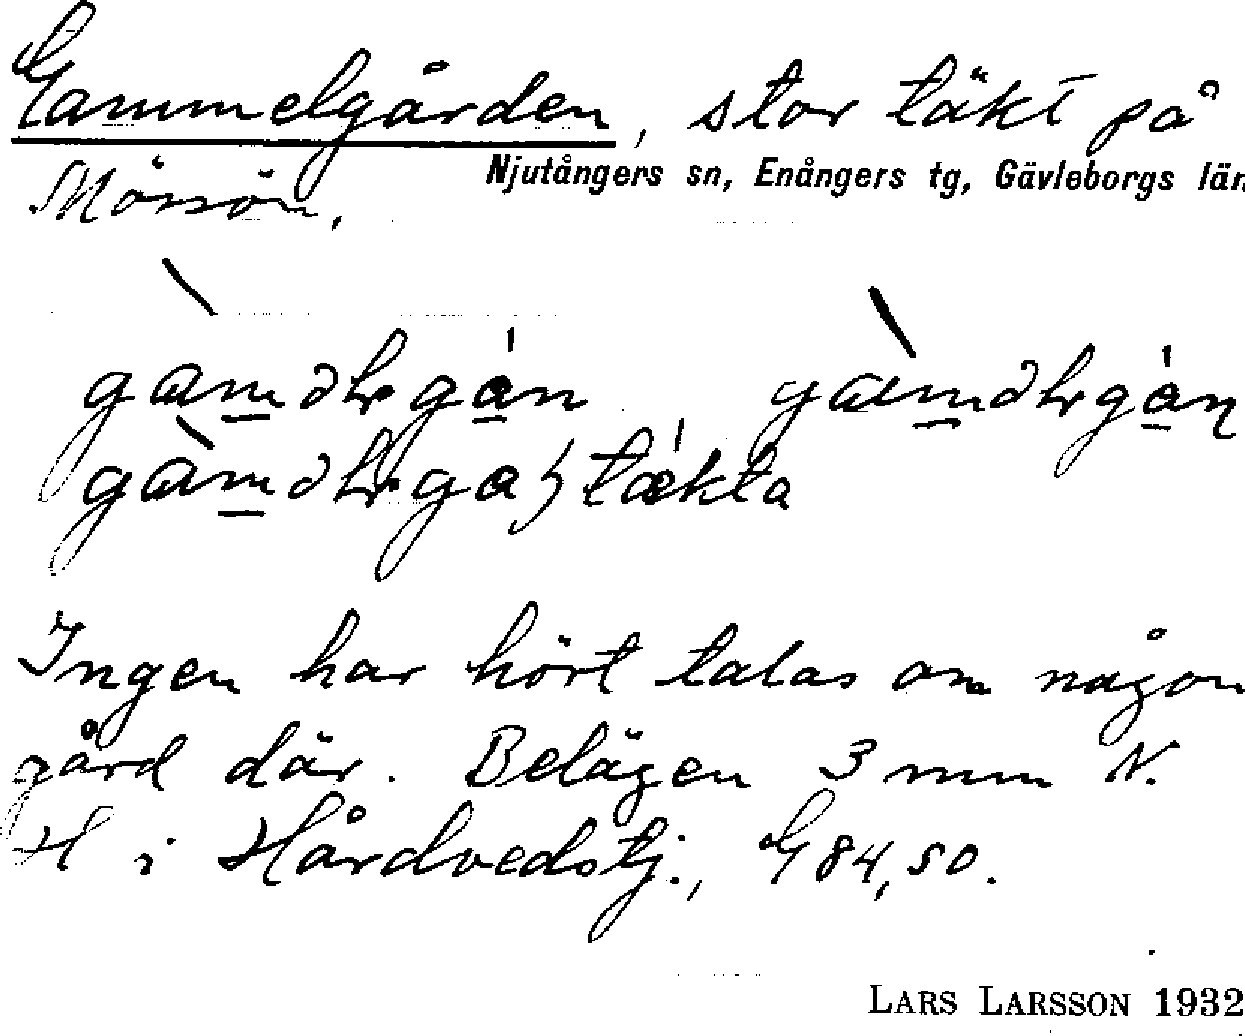 Gammelgården, stor täkt på
Njutångers sn, Enångers tg, Gävleborgs län
Mössön.
Ingen har hört talas om någon
gård där. Belägen 3 mm N.
H i Hårdvedstj., G 84,50.
LARS LARSSON 1932